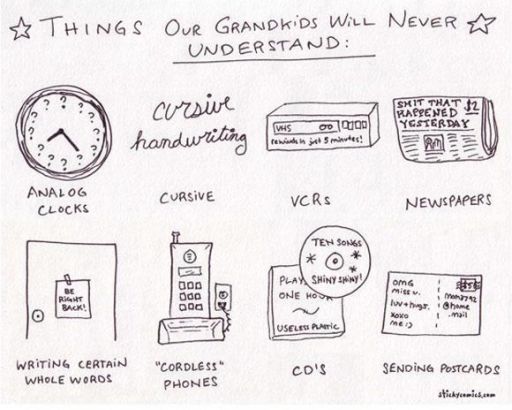 ☆ THINGS OUR GRANDKIDS WILL NEVER ☆
UNDERSTAND:
? ? ? ? ? ? ? ? ? ? ? ?
ANALOG
CLOCKS
cursive
handwriting
CURSIVE
VHS
rewinds in just 5 minutes!
VCRs
SHIT THAT $2
HAPPENED
YESTERDAY
NEWSPAPERS
BE
RIGHT
BACK!
WRITING CERTAIN
WHOLE WORDS
"CORDLESS"
PHONES
TEN SONGS
SHINY SHINY!
PLAY
ONE HOUR
USELESS PLASTIC
CD'S
OMG
miss u.
luv+hugs.
xoxo
me :)
mom3792
@home
.mail
SENDING POSTCARDS
stickycomics.com